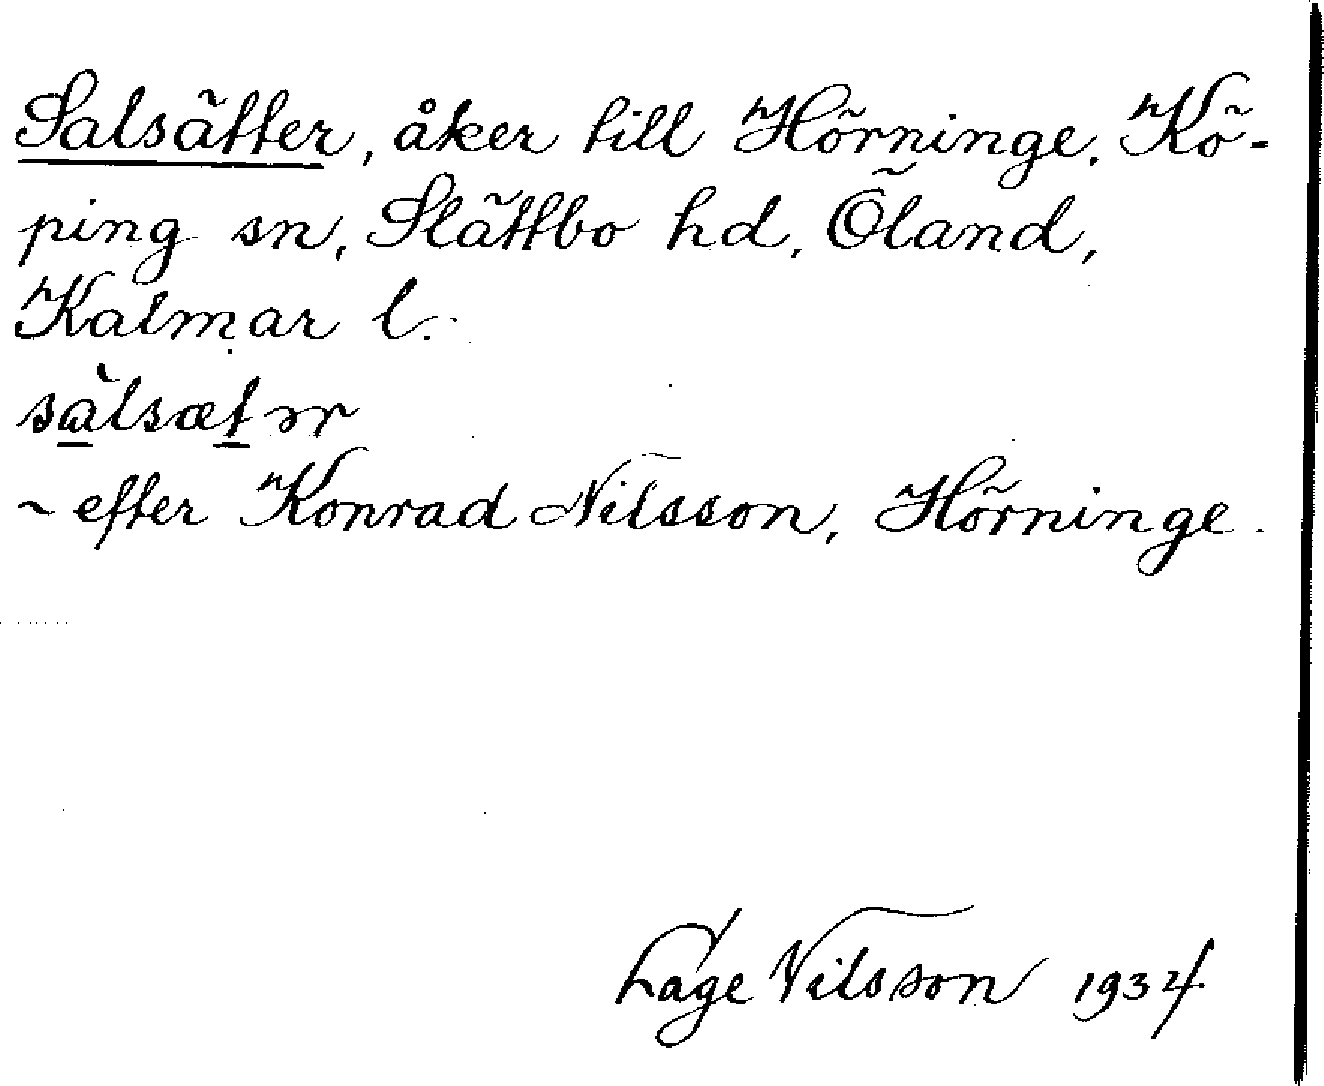 Salsätter, åker till Hörninge, Kö-
ping sn, Slättbo hd, Öland,
Kalmar l.
sàlsætər
~ efter Konrad Nilsson, Hörninge.
Lage Nilsson 1934